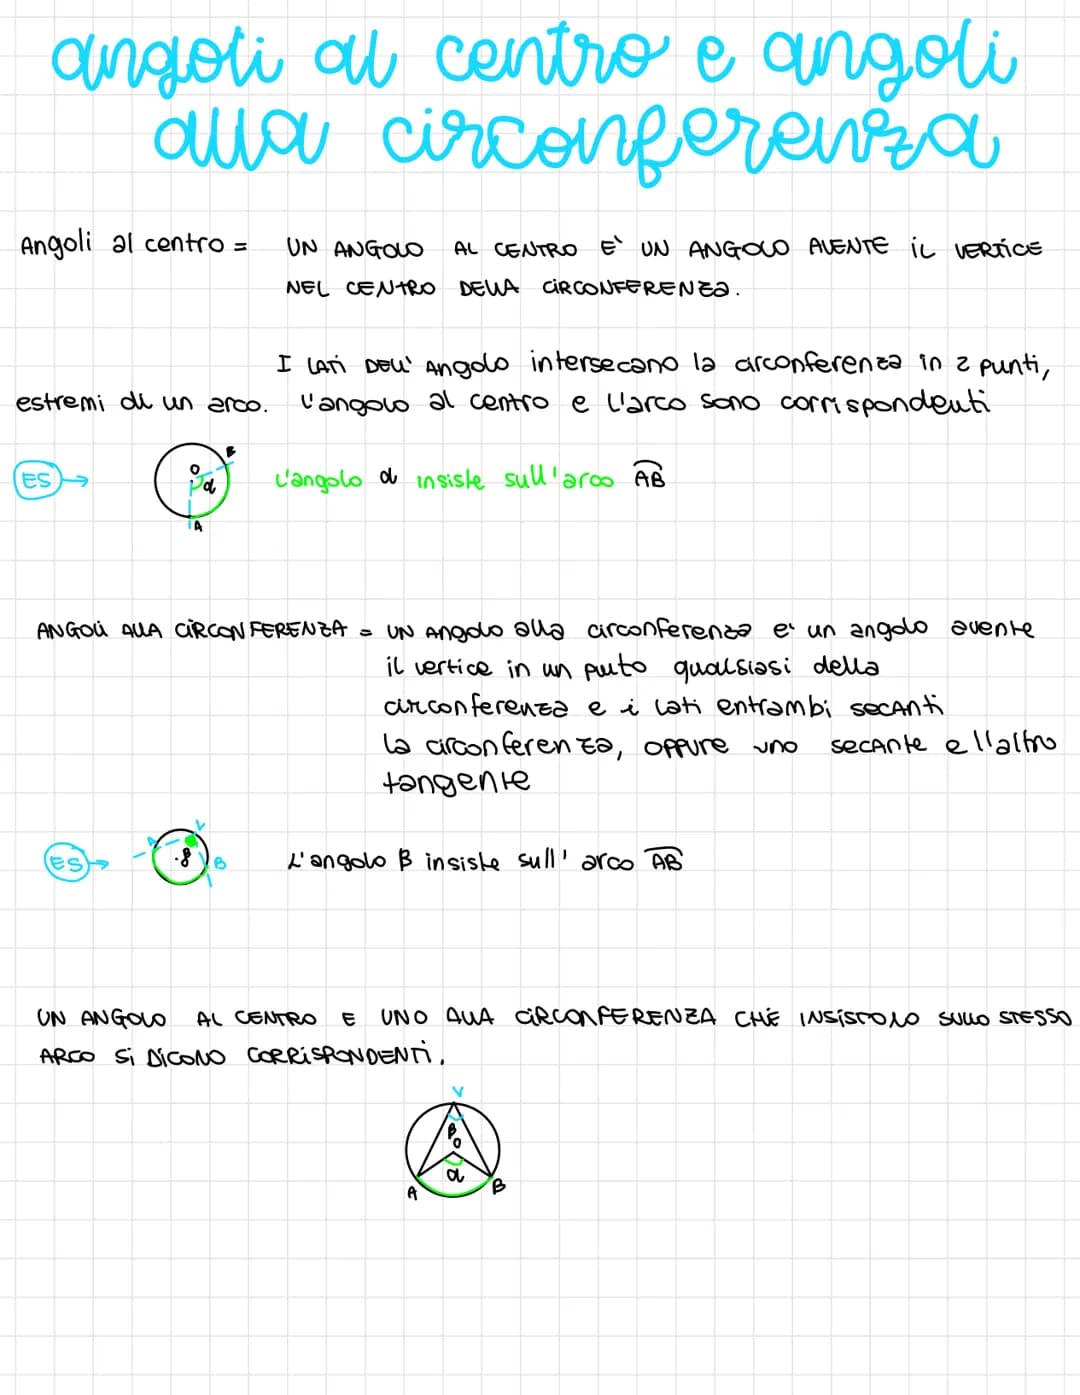 angoli al centro e angoli
alla circonferenza
Angoli al centro = UN ANGOLO AL CENTRO E' UN ANGOLO AVENTE IL VERTICE
NEL CENTRO DELLA CIRCONFERENZA.
I LATI DELL' ANGOLO intersecano la circonferenza in 2 punti,
estremi di un arco. L'angolo al centro e L'arco sono corrispondenti
ES → O α B A L'angolo α insiste sull'arco AB
ANGOLI ALLA CIRCONFERENZA = UN ANGOLO alla circonferenza e' un angolo avente
il vertice in un puto qualsiasi della
circonferenza e i lati entrambi secanti
la circonferenza, OPPURE uno secante e l'altro
tangente
ES → A V β B L'angolo β insiste sull' arco AB
UN ANGOLO AL CENTRO E UNO ALLA CIRCONFERENZA CHE INSISTOLO SULLO STESSO
ARCO SI DICONO CORRISPONDENTI.
V
β
O
α
A B